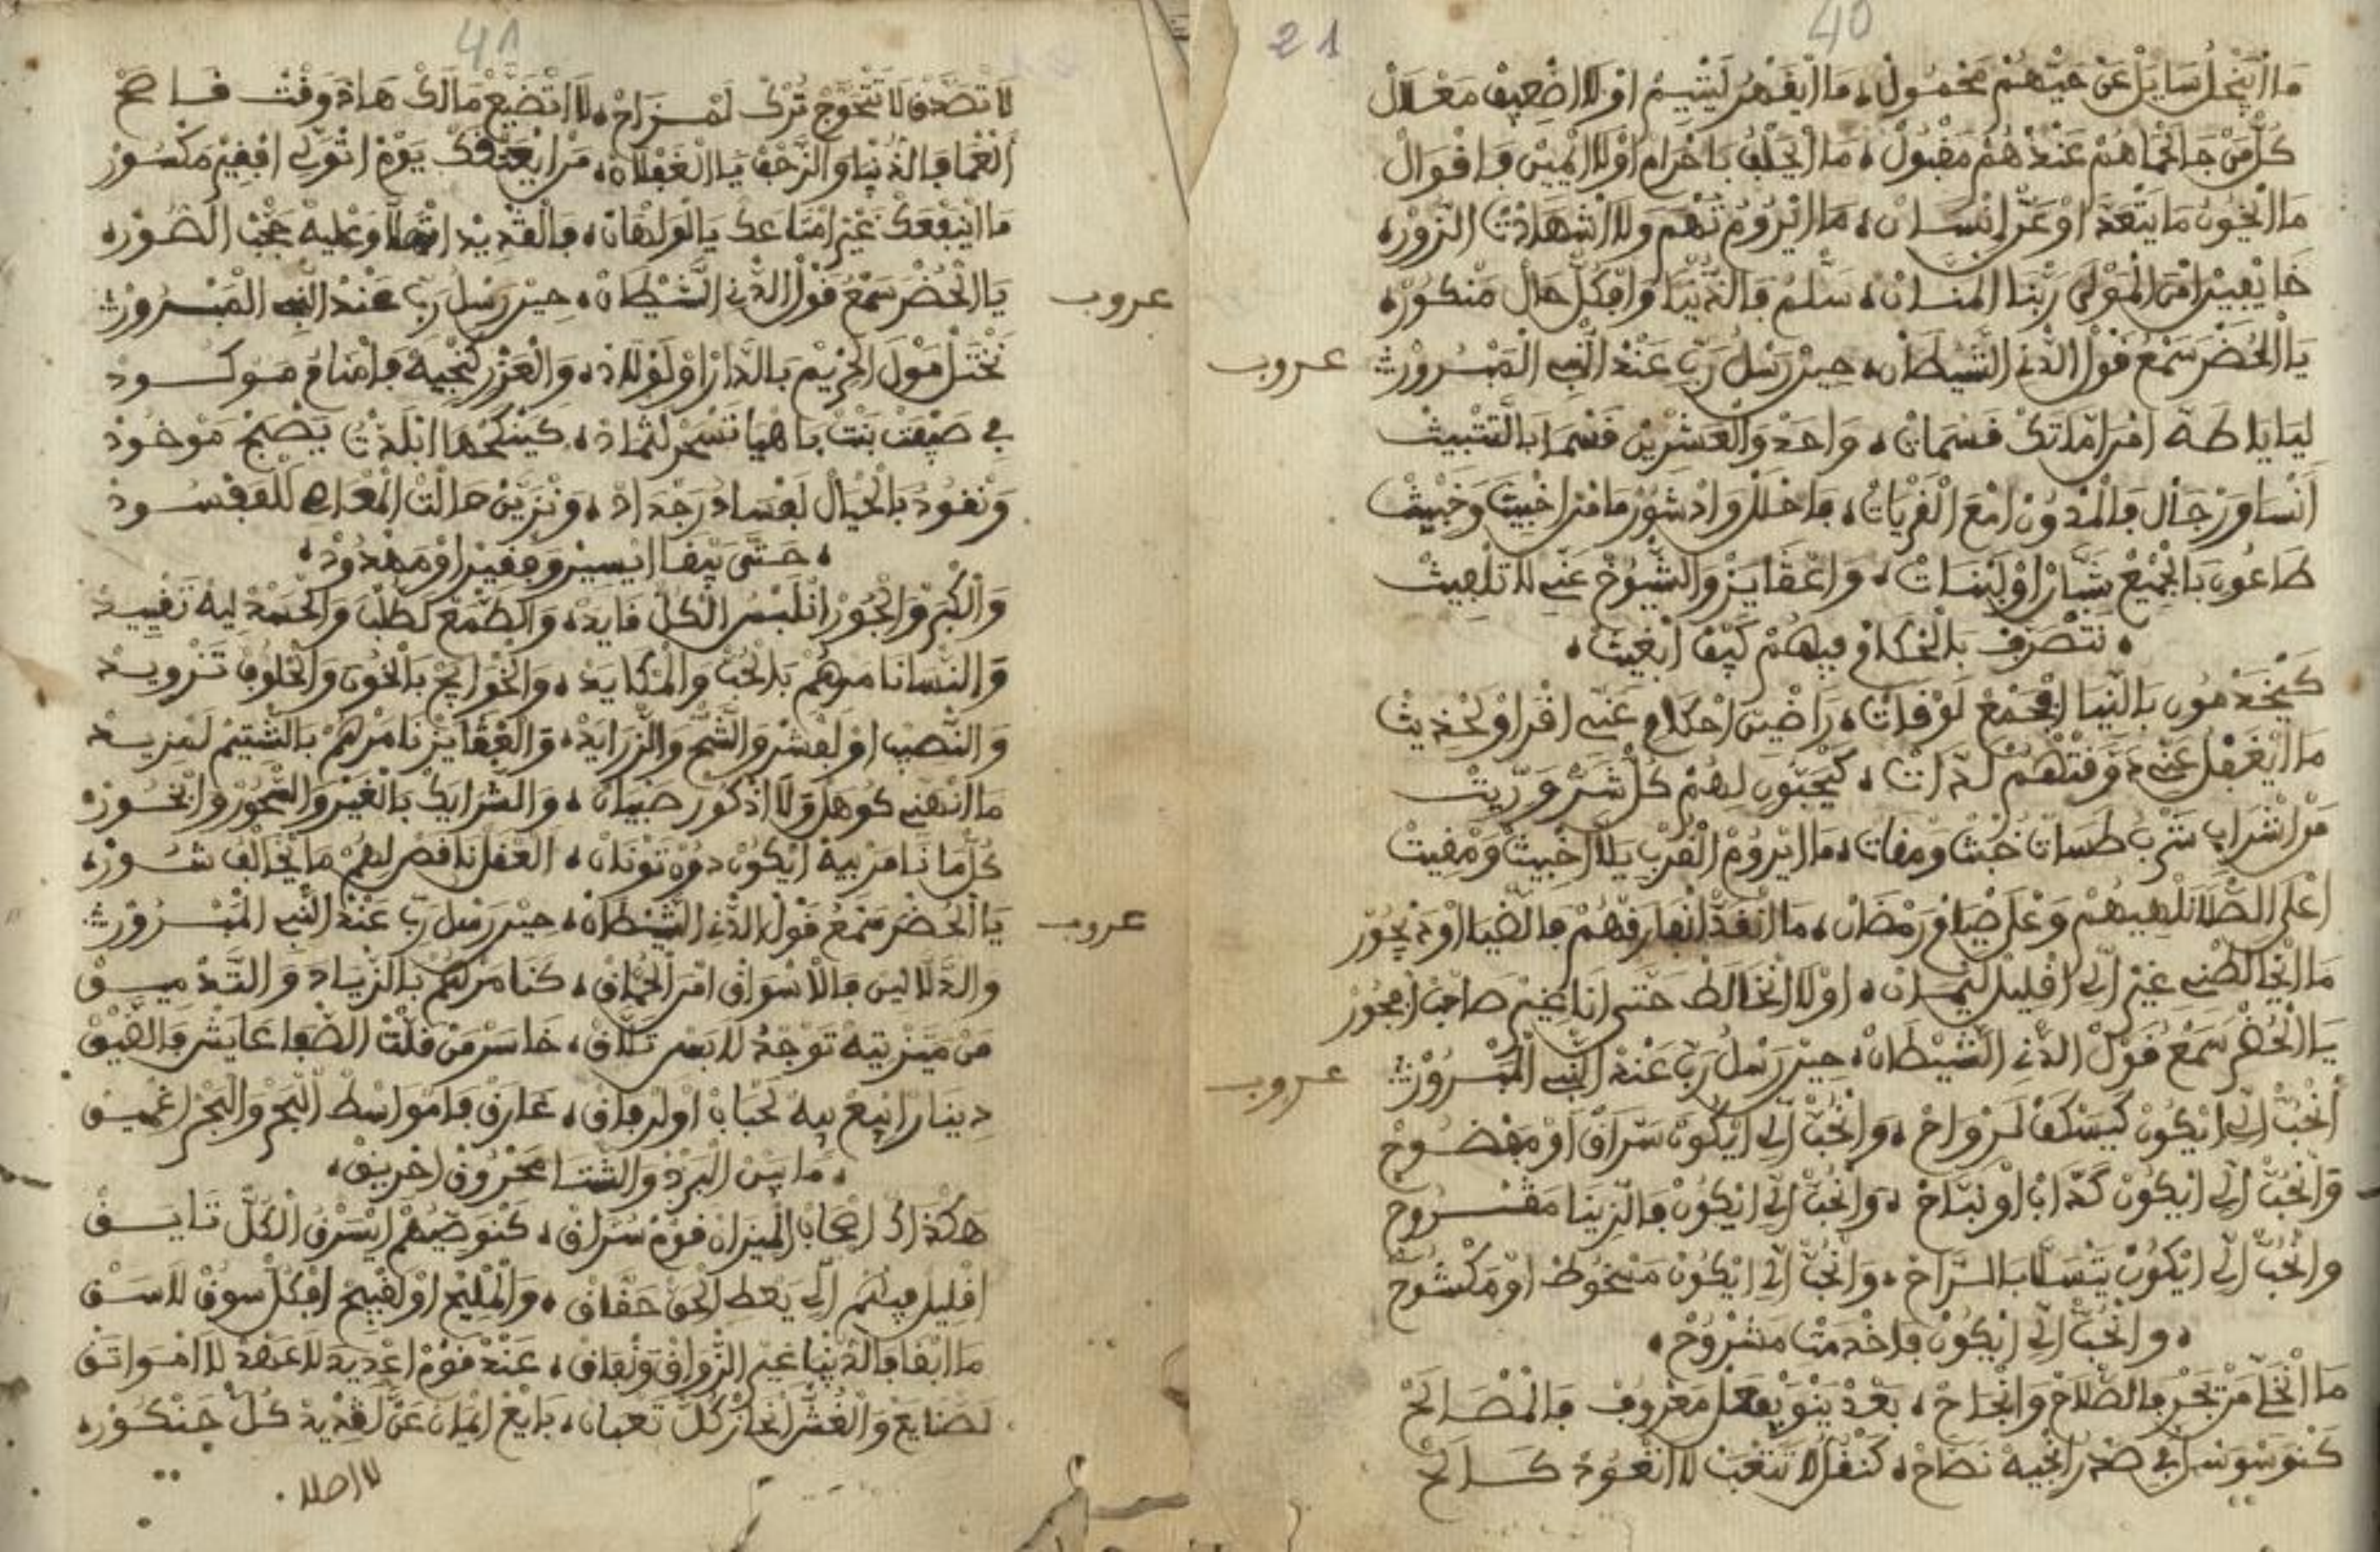 40
21
ما ايبخل سايل عن حيهم محمول، ما ايقهر ليتيم او لا اضعيف معلال
كل من جا لحماهم عندهم مقبول، ما ايحلف باحرام او لا ايميين فاقوال
ما ايخون ما يتعد او عز انسان، ما ايروم تهم ولا اشهادت الزور،
خايفين امن المولى ربنا المنان، سلم فالدنيا وافكل حال منكور،
عروب
يا الحضر سمع قول الذي الشيطان، حين رسل ربي عند النبي المبرور
ليا ياطه امرامتك قسمان، واحد والعشرين قسما بالتثبيث
انسا ورجال فالمدون امع القريات، اخبيث وخبيث
طاعون بالجميع شبار اولبنات، واعقايز والشيوخ عني لا تلهيث
، نتصرف بلحكام فيهم كيف ابغيت،
كيخدمون بالنيا افجمع لوقات، راضين احكام عني اقراو لحديث
ما ايغفل عني دوقتهم لذات، كيجبون لهم كل شر وريث
من اشراب شرب طسات خبث ومقات، ما ايروم القرب يلا اخبيث ومقيت
اعلى الصلا نلهيهم وعلى صيام رمضان، ما انقد انفارقهم فالضيا او ديجور
ما ايخالطني غير الي اقليل ليمان، او لا انخالط حتى انا غير صاحب افجور
عروب
يا الحضر سمع قول الذي الشيطان، حين رسل ربي عند النبي المبرور
انحب الي ايكون كيسكف لرواح، وانحب الي ايكون سراق او مفضوح
وانحب الي ايكون كداب او نباح، وانحب الي ايكون فالزينا مقروح
وانحب الي ايكون يتسلا بالراح، وانحب الي ايكون مسخوط او مكشوح
، وانحب الي ايكون فاخدمتي مشروح،
ما انخلي من يجر فالصلاح وانجاح، بعد ينو يفعل معروف فالمصالح
كنوسوس لي في صدر انجيه نصاح، كنقل لا تتعب لا اتعود كالح
41
لا تصدق لا تتحوج ترك لمزاح، لا اتضيع مالك هاد وقت فاصح
الغما فالدنيا والزحف يا الغفلان، من ايعتقك يوم اتولي افقير مكسور
ما اينفعك غير امتاعك يا لولهان، فالقديد وعليه عجب الصور،
عروب
يا الحضر سمع قول الذي الشيطان، حين رسل ربي عند النبي المبرور
نختل مول الحريم بالدار اولولاد، والعزر كنجيه فامنام موكود
في صيفت بنت باهيا تسحر لثماد، كينكحها ابلدت يصبح موخود
ونعود بالخيال لفساد رجداد، ونزين حالت المعراض للفسود
، حتى يبقا ايسير وفقير او مهدود،
والكبر والجور انلبس الكل فايد، والطمع لطلب والحمد ليه تفييد
والنسا نامرهم بلحب والمكايد، والخرايج بالخون والحلوف تزويد
والنصب او لغش والشح والزرايد، والعقايز نامرهم بالشتيم لمزيد
ما انهني كوهل ولا اذكور صبيان، والشرايك بالغير والسحور والبخور
كل ما نامر بيه ايكون دون توان، العقل ناقص ليهم ما يخالف شور،
عروب
يا الحضر سمع قول الذي الشيطان، حين رسل ربي عند النبي المبرور
والدلالين فالاسواق امر الحماق، كنامرهم بالزياد والتدميق
من ميزتيه توجد لابس تلاق، خاسر من قلت الصفا عايش فالضيق
دينار ايبيع بيه لحباب اولرفاق، غارق فامواسط البحر والبحر اغميق
، ما بين البرد والشتا محروق احريق،
هكذاك اصحاب الميزان قوم سراق، كنوصيهم ايسرق الكل تايق
اقليل فيهم الي يعط الحق حقاق، والمليح او لقبيح افكل سوق لاسق
ما ابقا فالدنيا غير الزواق ونفاق، عند قوم اعديد لا عهد لا امواتق
لصنايع والغش انحاز كل تعبان، بايع ايمان عن لقديد كل جنكور،
لا اصلا